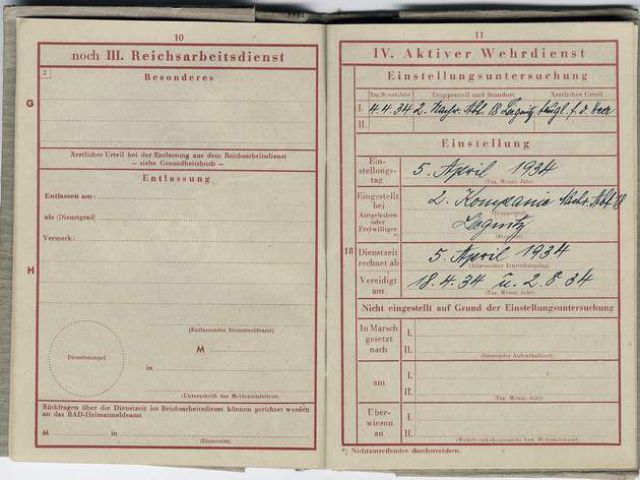 10
noch III. Reichsarbeitsdienst
2
Besonderes
G
Ärztliches Urteil bei der Entlassung aus dem Reichsarbeitsdienst
– siehe Gesundheitsbuch –
Entlassung
Entlassen am:
als (Dienstgrad)
Vermerk:
H
(Entlassendes Stammmeldeamt)
M
Dienststempel
in
(Unterschrift des Meldeamtsleiters)
Rückfragen über die Dienstzeit im Reichsarbeitsdienst können gerichtet werden
an das RAD-Heimatmeldeamt
M in
11
IV. Aktiver Wehrdienst
Einstellungsuntersuchung
Tag, Monat, Jahr Truppenteil und Standort Ärztliches Urteil
I. 4.4.34 2. Nachr. Abt. 18 Liegnitz taugl. f. d. Heer
II.
Einstellung
Ein-
stellungs-
tag
5. April 1934
(Tag, Monat, Jahr)
Eingestellt
bei
Ausgehoben
oder
Freiwilliger
*)
2. Kompanie Nachr. Abt. 18
(Truppenteil)
Liegnitz
(Standort)
18
Dienstzeit
rechnet ab
5. April 1934
Vereidigt
am
18.4.34 u. 2.8.34
(Tag, Monat, Jahr)
Nicht eingestellt auf Grund der Einstellungsuntersuchung
In Marsch
gesetzt
nach
I.
II.
(Dauernder Aufenthaltsort)
am
I.
II.
(Tag, Monat, Jahr)
Über-
wiesen
an
I.
II.
(Wehrbezirkskommando bzw. Wehrmeldeamt)
*) Nichtzutreffendes durchstreichen.